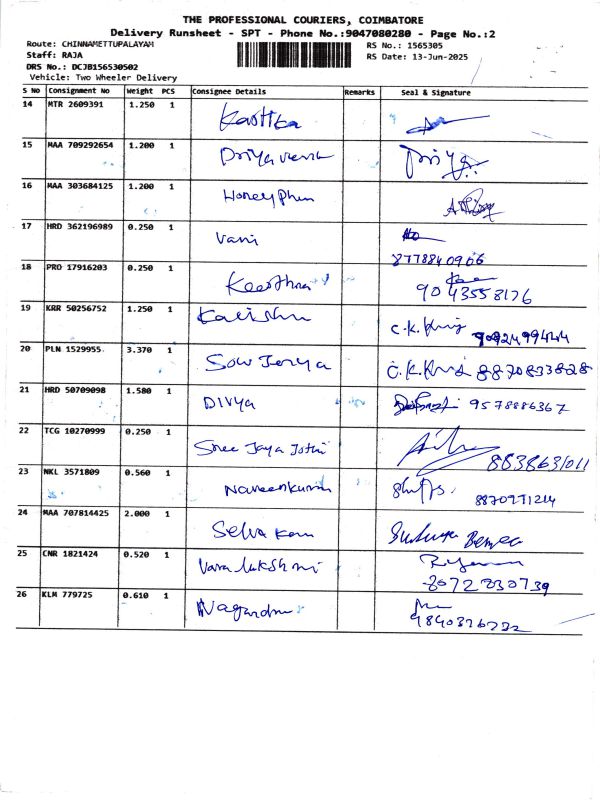 THE PROFESSIONAL COURIERS, COIMBATORE
Delivery Runsheet - SPT - Phone No.:9047080280 - Page No.:2
Route: CHINNAMETTUPALAYAM RS No.: 1565305
Staff: RAJA RS Date: 13-Jun-2025
DRS No.: DCJB156530502
Vehicle: Two Wheeler Delivery
S No Consignment No Weight PCS Consignee Details Remarks Seal & Signature
14 MTR 2609391 1.250 1 Karthika
15 MAA 709292654 1.200 1 Priya Priya
16 MAA 303684125 1.200 1 Honey Phun
17 HRD 362196989 0.250 1 Vani
8778840966
18 PRO 17916203 0.250 1 Keerthna
9043558176
19 KRR 50256752 1.250 1 C.K.
20 PLN 1529955 3.370 1 Sow C.K. 8870833828
21 HRD 50709098 1.580 1 Divya 9578886367
22 TCG 10270999 0.250 1 Sree Jaya Jothi
8838631011
23 NKL 3571809 0.560 1 Naveenkumar
8870971214
24 MAA 707814425 2.000 1 Selva
25 CNR 1821424 0.520 1 Varalukshmi
8072830739
26 KLM 779725 0.610 1
9840376732